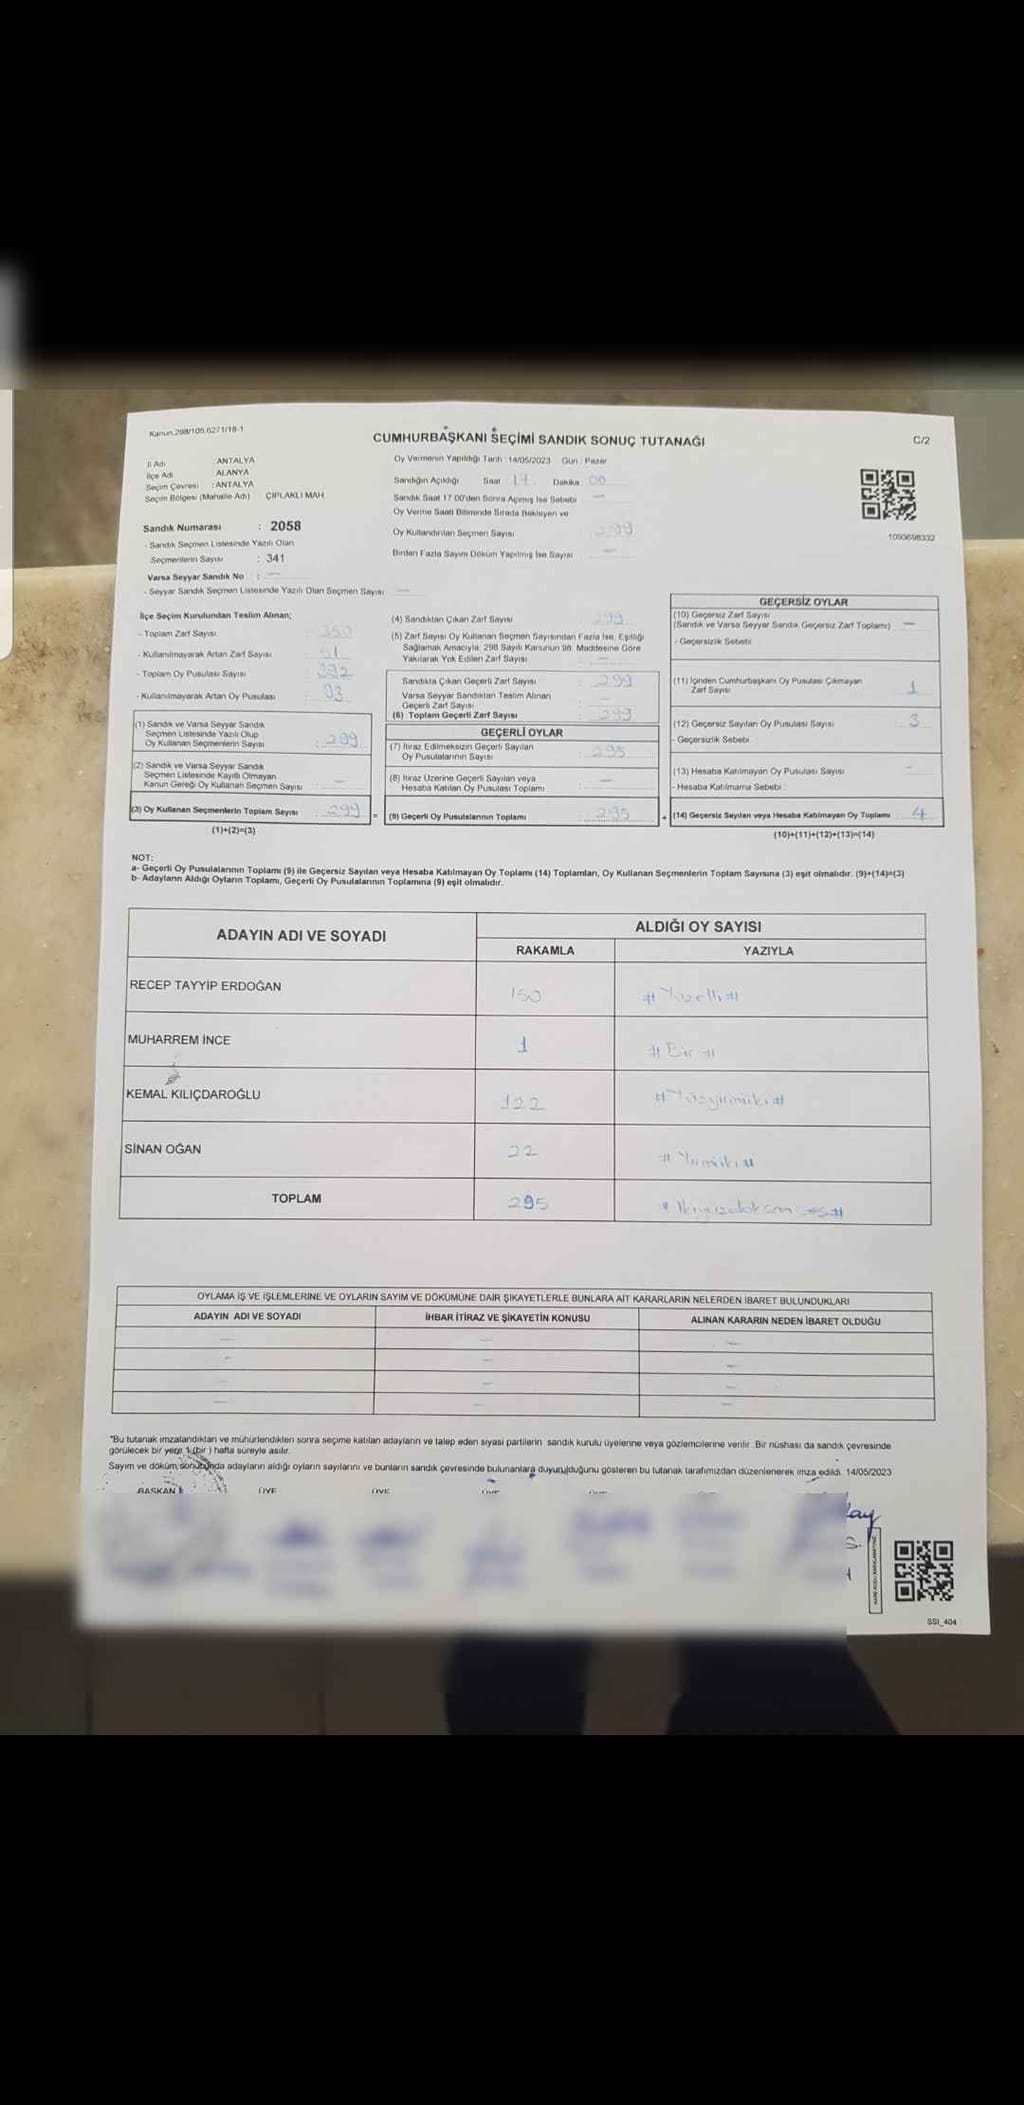 Kanun.298/105,6271/18-1
CUMHURBAŞKANI SEÇİMİ SANDIK SONUÇ TUTANAĞI
C/2
İl Adı : ANTALYA
İlçe Adı : ALANYA
Seçim Çevresi : ANTALYA
Seçim Bölgesi (Mahalle Adı) ÇIPLAKLI MAH.
Oy Vermenin Yapıldığı Tarih : 14/05/2023 Gün : Pazar
Sandığın Açıldığı Saat : 17 Dakika : 00
Sandık Saat 17:00'den Sonra Açılmış İse Sebebi : —
Oy Verme Saati Bitiminde Sırada Bekleyen ve
Oy Kullandırılan Seçmen Sayısı : 299
Birden Fazla Sayım Döküm Yapılmış İse Sayısı : —
1090698332
Sandık Numarası : 2058
- Sandık Seçmen Listesinde Yazılı Olan
Seçmenlerin Sayısı : 341
Varsa Seyyar Sandık No : —
- Seyyar Sandık Seçmen Listesinde Yazılı Olan Seçmen Sayısı : —
İlçe Seçim Kurulundan Teslim Alınan;
- Toplam Zarf Sayısı : 350
- Kullanılmayarak Artan Zarf Sayısı : 51
- Toplam Oy Pusulası Sayısı : 392
- Kullanılmayarak Artan Oy Pusulası : 93
(1) Sandık ve Varsa Seyyar Sandık
Seçmen Listesinde Yazılı Olup
Oy Kullanan Seçmenlerin Sayısı : 299
(2) Sandık ve Varsa Seyyar Sandık
Seçmen Listesinde Kayıtlı Olmayan
Kanun Gereği Oy Kullanan Seçmen Sayısı : —
(3) Oy Kullanan Seçmenlerin Toplam Sayısı : 299
(1)+(2)=(3)
(4) Sandıktan Çıkan Zarf Sayısı : 299
(5) Zarf Sayısı Oy Kullanan Seçmen Sayısından Fazla İse, Eşitliği
Sağlamak Amacıyla, 298 Sayılı Kanunun 98. Maddesine Göre
Yakılarak Yok Edilen Zarf Sayısı : —
Sandıkta Çıkan Geçerli Zarf Sayısı : 299
Varsa Seyyar Sandıktan Teslim Alınan
Geçerli Zarf Sayısı : —
(6) Toplam Geçerli Zarf Sayısı : 299
GEÇERLİ OYLAR
(7) İtiraz Edilmeksizin Geçerli Sayılan
Oy Pusulalarının Sayısı : 295
(8) İtiraz Üzerine Geçerli Sayılan veya
Hesaba Katılan Oy Pusulası Toplamı : —
= (9) Geçerli Oy Pusulalarının Toplamı : 295
GEÇERSİZ OYLAR
(10) Geçersiz Zarf Sayısı
(Sandık ve Varsa Seyyar Sandık Geçersiz Zarf Toplamı) : —
- Geçersizlik Sebebi :
(11) İçinden Cumhurbaşkanı Oy Pusulası Çıkmayan
Zarf Sayısı : 1
(12) Geçersiz Sayılan Oy Pusulası Sayısı : 3
- Geçersizlik Sebebi :
(13) Hesaba Katılmayan Oy Pusulası Sayısı : —
- Hesaba Katılmama Sebebi :
+ (14) Geçersiz Sayılan veya Hesaba Katılmayan Oy Toplamı : 4
(10)+(11)+(12)+(13)=(14)
NOT:
a- Geçerli Oy Pusulalarının Toplamı (9) ile Geçersiz Sayılan veya Hesaba Katılmayan Oy Toplamı (14) Toplamları, Oy Kullanan Seçmenlerin Toplam Sayısına (3) eşit olmalıdır. (9)+(14)=(3)
b- Adayların Aldığı Oyların Toplamı, Geçerli Oy Pusulalarının Toplamına (9) eşit olmalıdır.
ADAYIN ADI VE SOYADI
ALDIĞI OY SAYISI
RAKAMLA YAZIYLA
RECEP TAYYİP ERDOĞAN 150 # Yüzelli #
MUHARREM İNCE 1 # Bir #
KEMAL KILIÇDAROĞLU 122 # Yüzyirmiiki #
SİNAN OĞAN 22 # Yirmiiki #
TOPLAM 295 # İkiyüzdoksanbeş #
OYLAMA İŞ VE İŞLEMLERİNE VE OYLARIN SAYIM VE DÖKÜMÜNE DAİR ŞİKAYETLERLE BUNLARA AİT KARARLARIN NELERDEN İBARET BULUNDUKLARI
ADAYIN ADI VE SOYADI İHBAR İTİRAZ VE ŞİKAYETİN KONUSU ALINAN KARARIN NEDEN İBARET OLDUĞU
— — —
— — —
— — —
— — —
*Bu tutanak imzalandıktan ve mühürlendikten sonra seçime katılan adayların ve talep eden siyasi partilerin sandık kurulu üyelerine veya gözlemcilerine verilir. Bir nüshası da sandık çevresinde
görülecek bir yere 1 (bir) hafta süreyle asılır.
Sayım ve döküm sonucunda adayların aldığı oyların sayılarını ve bunların sandık çevresinde bulunanlara duyurulduğunu gösteren bu tutanak tarafımızdan düzenlenerek imza edildi. 14/05/2023
BAŞKAN ÜYE ÜYE ÜYE ÜYE
SSI_404